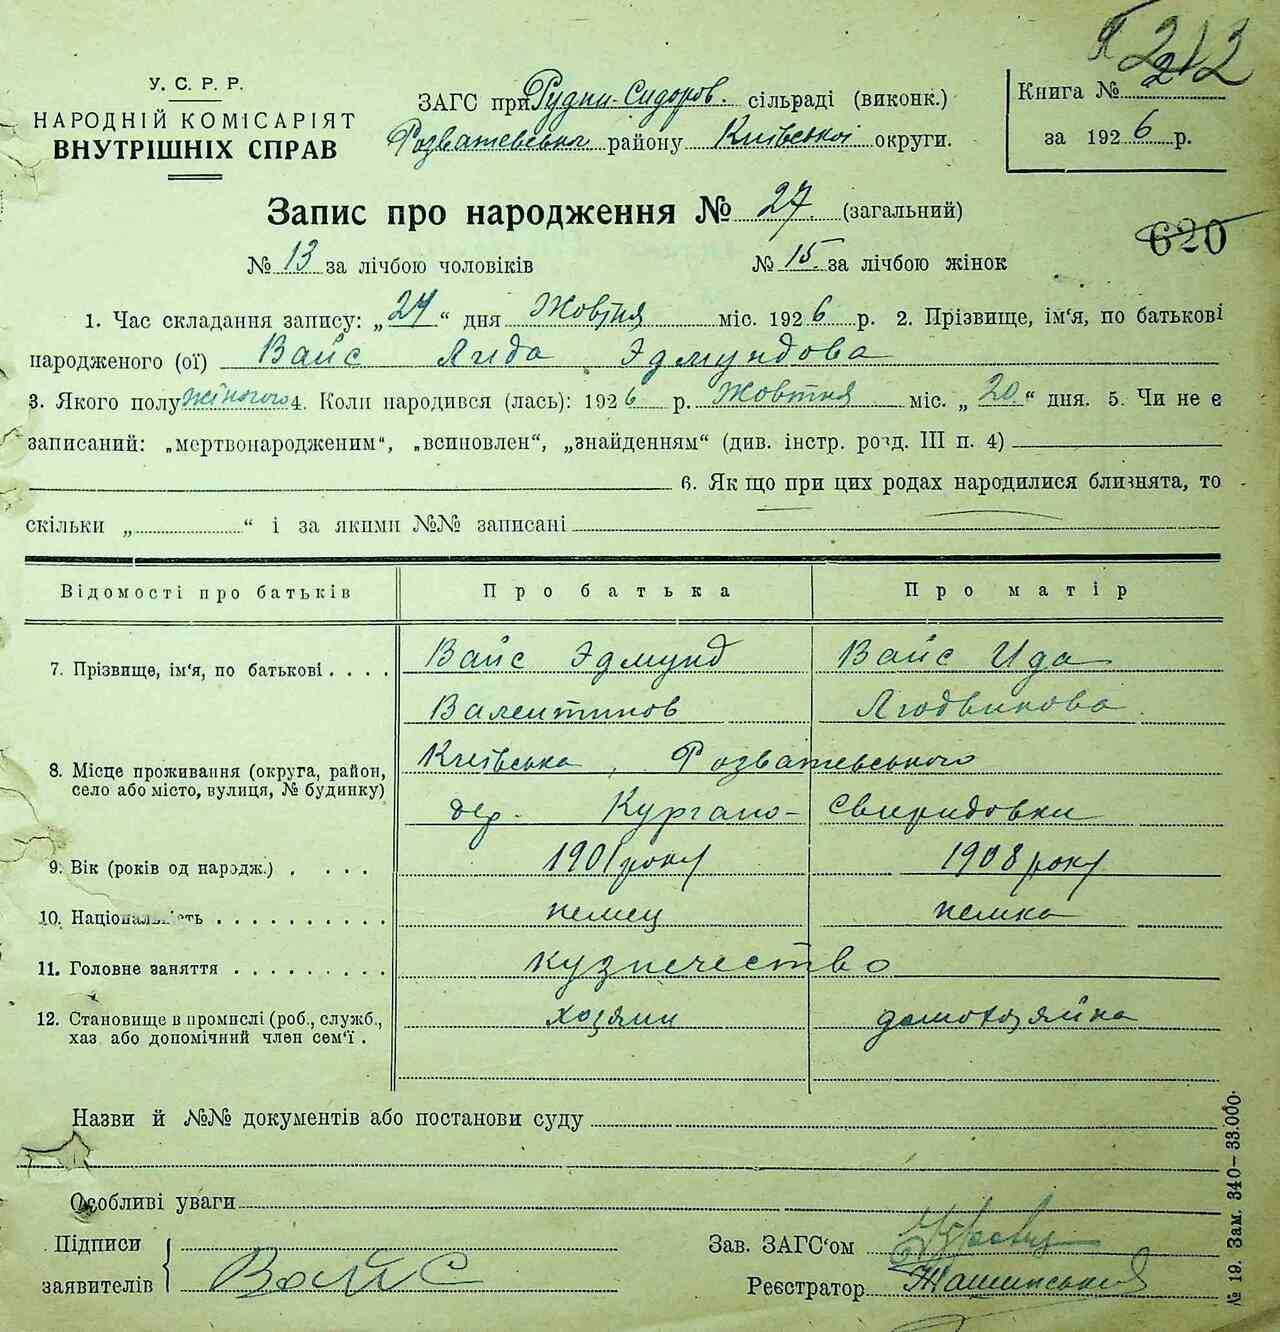 212
У. С. Р. Р.
НАРОДНІЙ КОМІСАРІЯТ
ВНУТРІШНІХ СПРАВ
ЗАГС при Рудни-Сидоров. сільраді (виконк.)
Розважевського району Київської округи.
Книга № 2
за 1926 р.
Запис про народження № 27. (загальний)
620
№ 13 за лічбою чоловіків № 15. за лічбою жінок
1. Час складання запису: „27“ дня Жовтня міс. 1926 р. 2. Прізвище, ім'я, по батькові
народженого (ої) Вайс Лида Эдмундова
3. Якого полу жіночого 4. Коли народився (лась): 1926 р. Жовтня міс. „20“ дня. 5. Чи не є
записаний: „мертвонародженим“, „всиновлен“, „знайденням“ (див. інстр. розд. III п. 4)
6. Як що при цих родах народилися близнята, то
скільки „ “ і за якими №№ записані
Відомості про батьків Про батька Про матір
7. Прізвище, ім'я, по батькові . . . . Вайс Эдмунд Вайс Ида
Валентинов Людвикова
8. Місце проживання (округа, район, село або місто, вулиця, № будинку) Київська, Розважевського
дер. Кургано-Свиридовки
9. Вік (років од народж.) . . . . 1901 року 1908 року
10. Національність . . . . . . . . . . немец немка
11. Головне заняття . . . . . . . . . кузнечество
12. Становище в промислі (роб., служб., хозяин домохозяйка
хаз. або допомічний член сем'ї .
Назви й №№ документів або постанови суду
Особливі уваги
Підписи
заявителів Вайс
Зав. ЗАГС'ом
Реєстратор
№ 19. Зам. 340–33.000.